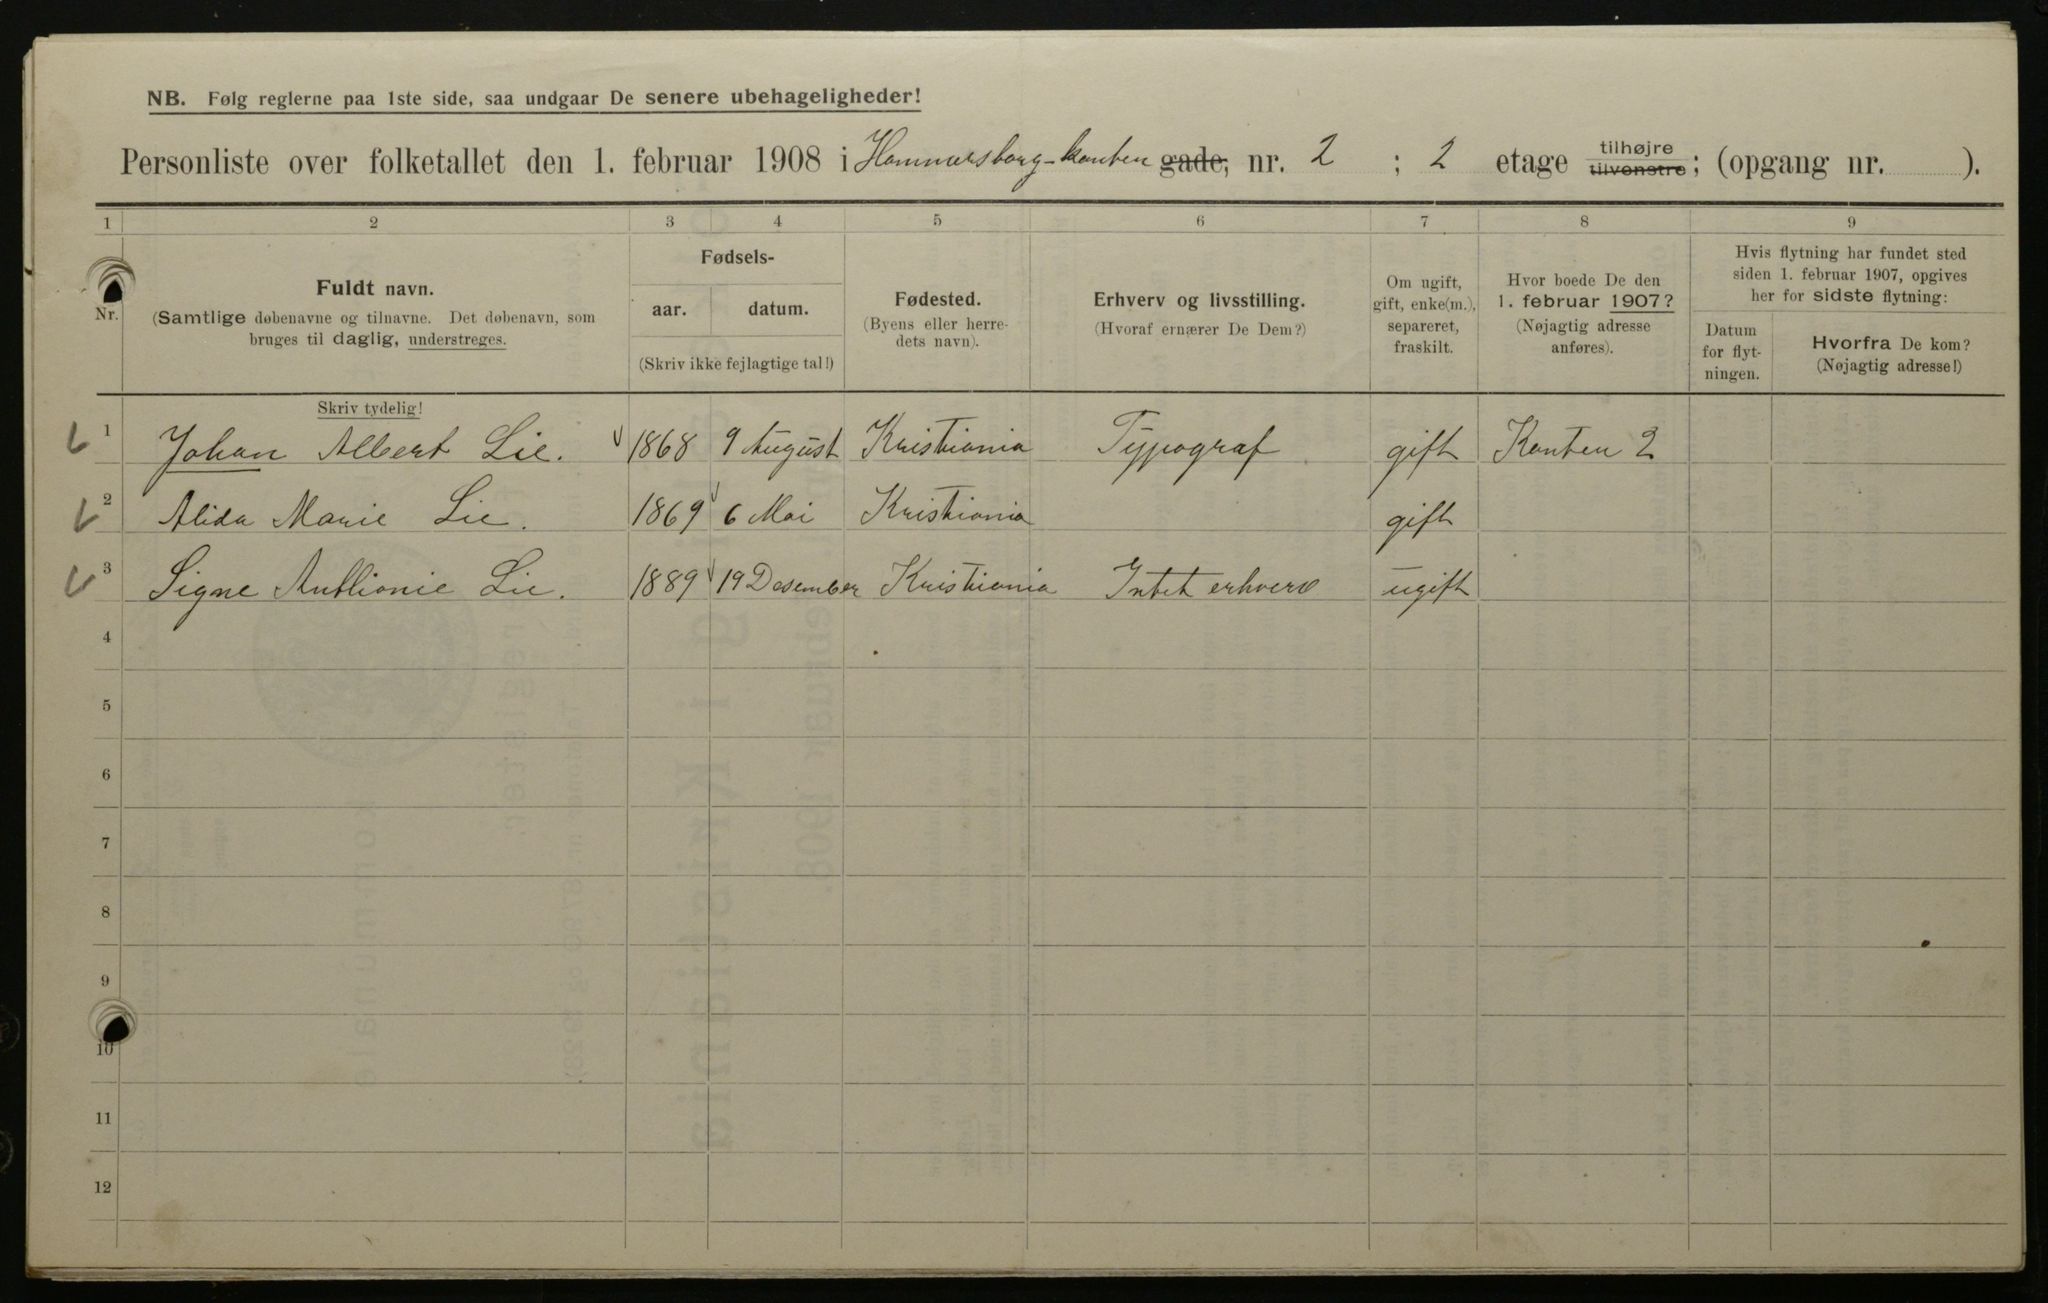 NB. Følg reglerne paa 1ste side, saa undgaar De senere ubehageligheder!
Personliste over folketallet den 1. februar 1908 i Hammersborg-kanten gade, nr. 2 ; 2 etage tilhøjre tilvenstre; (opgang nr. ).
1 2 3 4 5 6 7 8 9
Nr.
Fuldt navn.
(Samtlige døbenavne og tilnavne. Det døbenavn, som
bruges til daglig, understreges.
Skriv tydelig!
Fødsels-
aar. datum.
(Skriv ikke fejlagtige tal!)
Fødested.
(Byens eller herre-
dets navn).
Erhverv og livsstilling.
(Hvoraf ernærer De Dem?)
Om ugift,
gift, enke(m.),
separeret,
fraskilt.
Hvor boede De den
1. februar 1907?
(Nøjagtig adresse
anføres).
Hvis flytning har fundet sted
siden 1. februar 1907, opgives
her for sidste flytning:
Datum
for flyt-
ningen.
Hvorfra De kom?
(Nøjagtig adresse!)
1 Johan Albert Lie. 1868 9 August Kristiania Typograf gift Kanten 2
2 Alida Marie Lie. 1869 6 Mai Kristiania gift
3 Signe Lie. 1889 19 Desember Kristiania Intet erhverv ugift
4
5
6
7
8
9
10
11
12